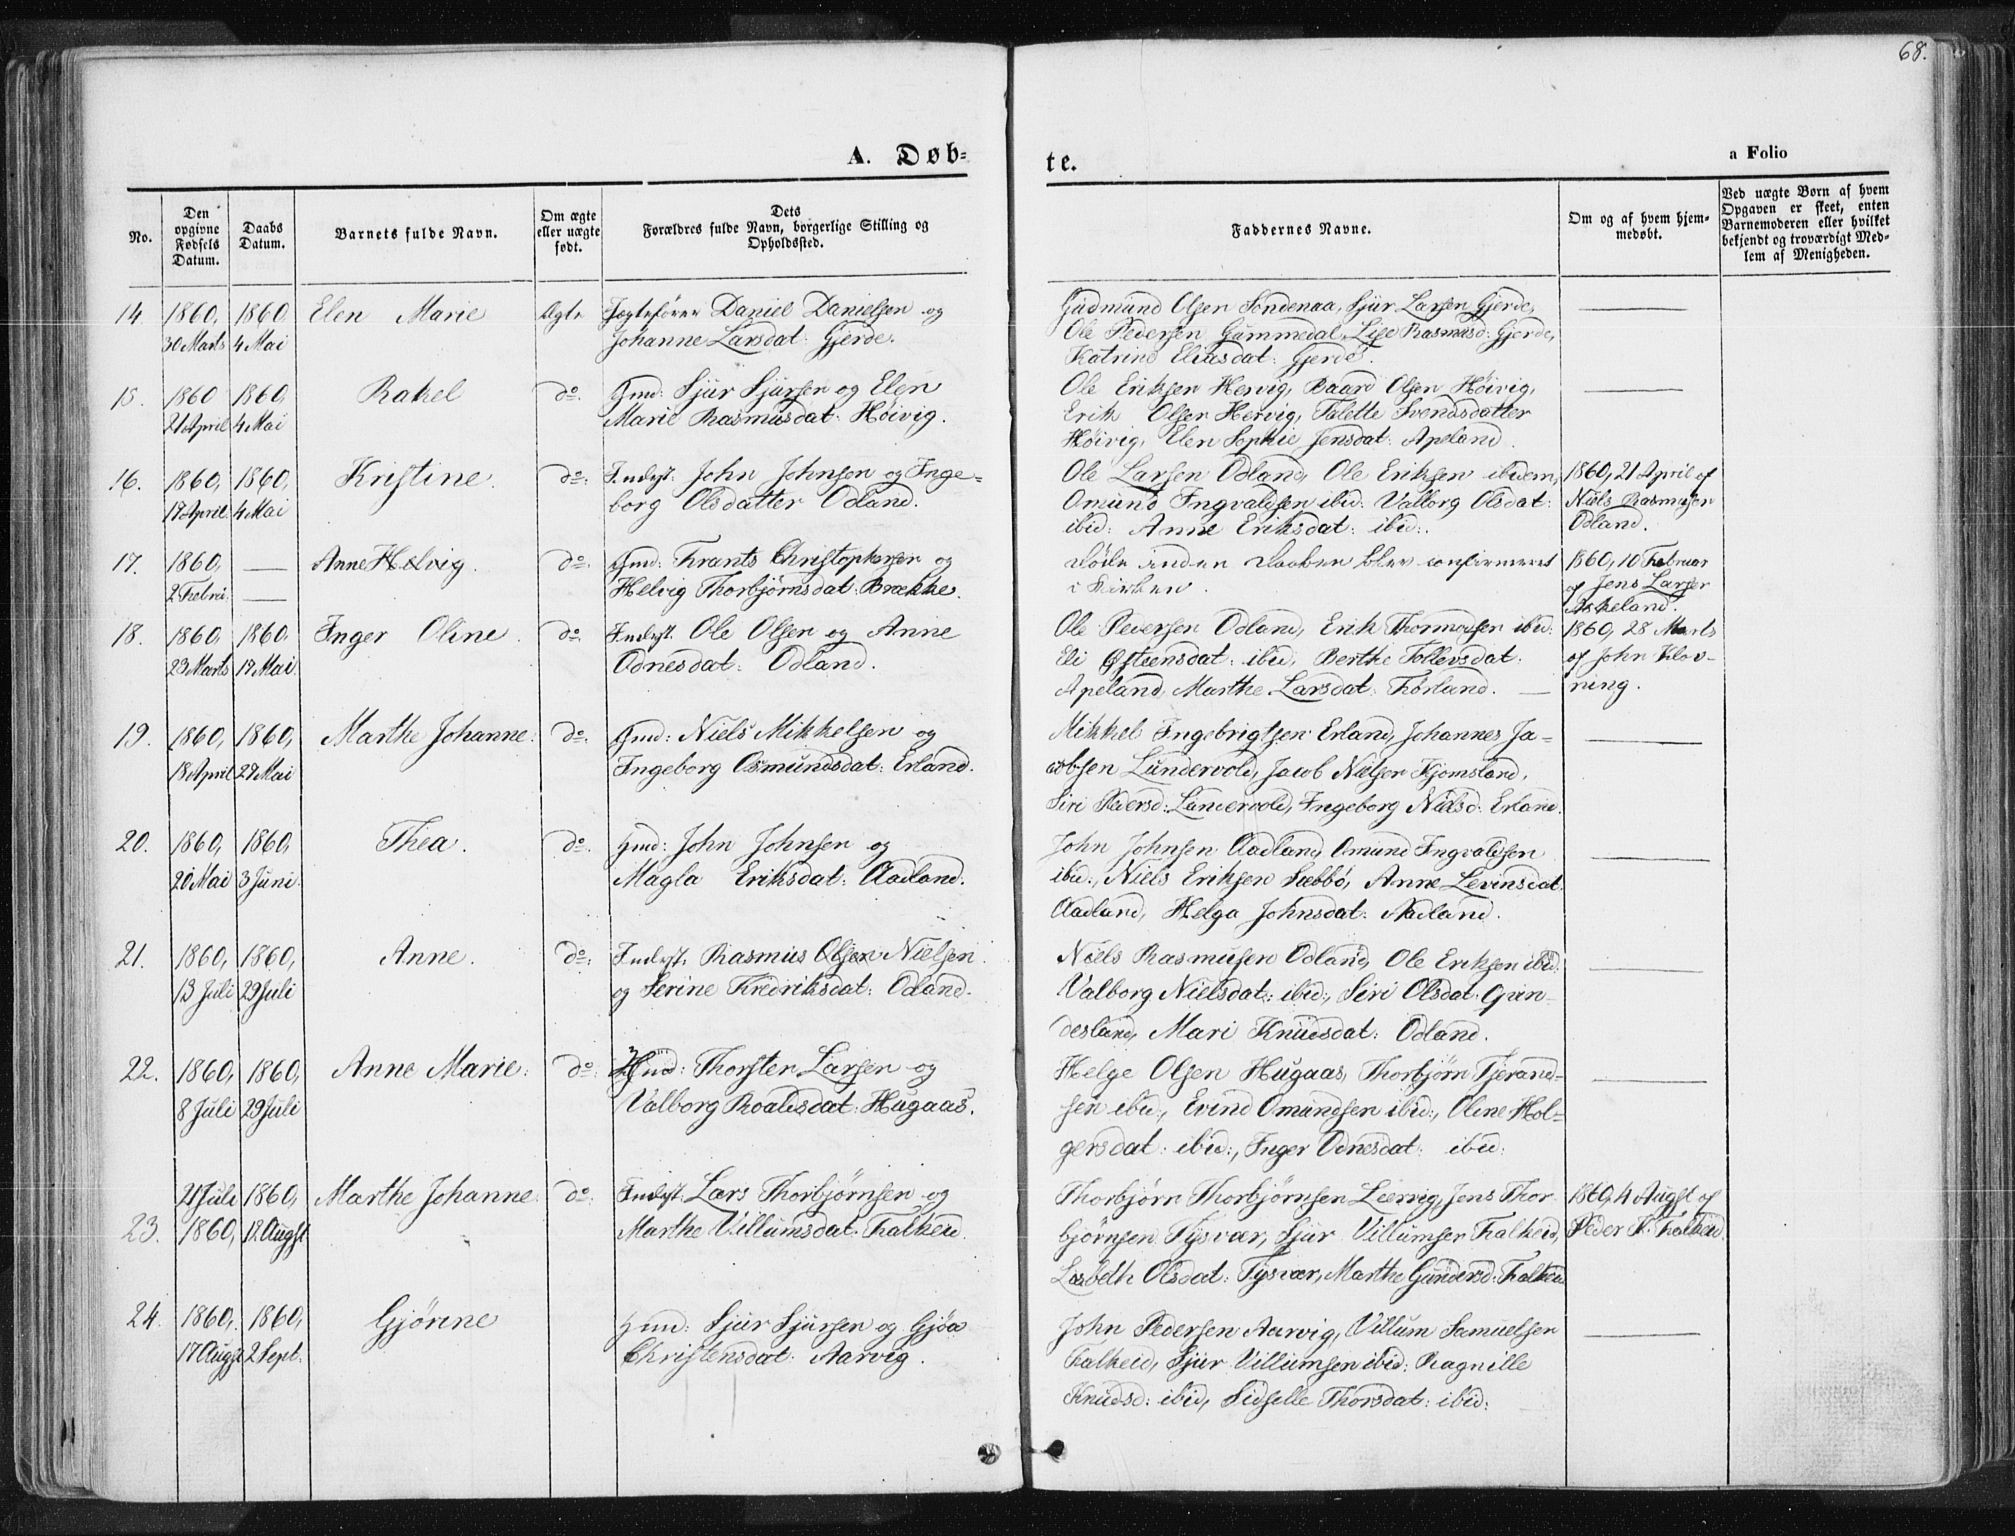 68.
A. Døb-
te.
a Folio
No.
Den opgivne Fødsels Datum.
Daabs Datum.
Barnets fulde Navn.
Om ægte eller uægte født.
Dets Forældres fulde Navn, borgerlige Stilling og Opholdssted.
Faddernes Navne.
Om og af hvem hjemmedøbt.
Ved uægte Børn af hvem Opgaven er skeet, enten Barnemoderen eller hvilket bekjendt og troværdigt Medlem af Menigheden.
14. 1860, 30 Marts 1860 4 Mai Elen Marie Ægte
Daniel Danielsen og
Johanne Larsdat: Gjerde.
Gudmund Olsen Søndenaa, Sjur Larsen Gjerde,
Ole Pedersen Gummedal, Lise Rasmusd: Gjerde,
Katrine Eliasdat: Gjerde.
15. 1860 21 April 1860, 4 Mai Rakel do.
Gmd: Sjur Sjursen og Elen
Marie Rasmusdat: Høivig.
Ole Eriksen Hervig, Baard Olsen Høivig,
Erik Olsen Hervig, Talette Svendsdatter
Høivig, Elen Sophie Jensdat: Apeland.
16. 1860, 19 April 1860, 4 Mai Kristine. do.
Inderst: John Johnsen og Inge-
borg Olsdatter Odland.
Ole Larsen Odland, Ole Eriksen ibidem,
Omund Ingvaldsen ibid: Valborg Olsdat:
ibid: Anne Eriksdat: ibid:.
1860, 21 April af
Niels Rasmusen
Odland.
17. 1860, 2 Febru: — Anne Helvig. do.
Gmd: Frants Christophersen og
Helvig Thorbjørnsdat: Brække.
Døde inden Daaben blev confirmeret
i Kirken.
1860, 10 Februar
af Jens Larsen
Askeland.
18. 1860 23 Marts 1860, 19 Mai. Inger Oline. do
Inderst. Ole Olsen og Anne
Odnesdat: Odland.
Ole Pedersen Odland, Erik Thormodsen ibid:
Eli Østeensdat: ibid, Berthe Tollevsdat:
Apeland, Marthe Larsdat: Førland. —
1860, 28 Marts
af John Klov-
ning.
19. 1860, 18 April 1860, 27 Mai Marthe Johanne: do.
Gmd: Niels Mikkelsen og
Ingeborg Osmundsdat: Erland.
Mikkel Ingebrigtsen Erland, Johannes Ja-
cobsen Lundervold, Jacob Nielsen Kjomsland,
Siri Pedersd: Lundervold, Ingeborg Nielsd: Erland.
20. 1860, 20 Mai 1860, 3 Juni. Thea. do.
Gmd: John Johnsen og
Magla Eriksdat: Aadland.
John Johnsen Aadland, Omund Ingvaldsen
ibid:, Niels Eriksen Sæbbø, Anne Levinsdat
Aadland, Helga Johnsdat: Aadland.
21. 1860, 13 Juli 1860, 29 Juli Anne. do:
Inderst. Rasmus Olsen Nielsen.
og Serine Fredriksdat: Odland.
Niels Rasmusen Odland, Ole Eriksen ibid:
Valborg Nielsdat: ibid:, Siri Olsdat: Grin-
desland, Mari Knudsdat: Odland.
22. 1860, 8 Juli 1860, 29 Juli Anne Marie: do:
Hmd: Thorsten Larsen og
Valborg Roaldsdat: Hugaas.
Helge Olsen Hugaas, Thorbjørn Tjerand-
sen ibid:, Evind Omundsen ibid:, Oline Hol-
gersdat: ibid:, Inger Odnesdat: ibid:
23. 21 Juli 1860, 1860, 12 Augst Marthe Johanne: do.
Inderst: Lars Thorbjørnsen og
Marthe Villumsdat: Falkeid.
Thorbjørn Thorbjørnsen Leervig, Jens Thor-
bjørnsen Tysvær, Sjur Villumsen Falkeid,
Lisbeth Olsdat: Tysvær, Marthe Gundersd: Falkeid
1860, 4 Augst af
Peder K. Falkeid
24. 1860, 17 Augst 1860, 2 Sept. Gjørine
Gmd: Sjur Sjursen og Gjøa
Christensdat: Aarvig.
John Pedersen Aarvig, Villum Samuelsen
Falkeid, Sjur Villumsen ibid: Ragnille
Knudsd: ibid, Sidselle Thorsdat: ibid: